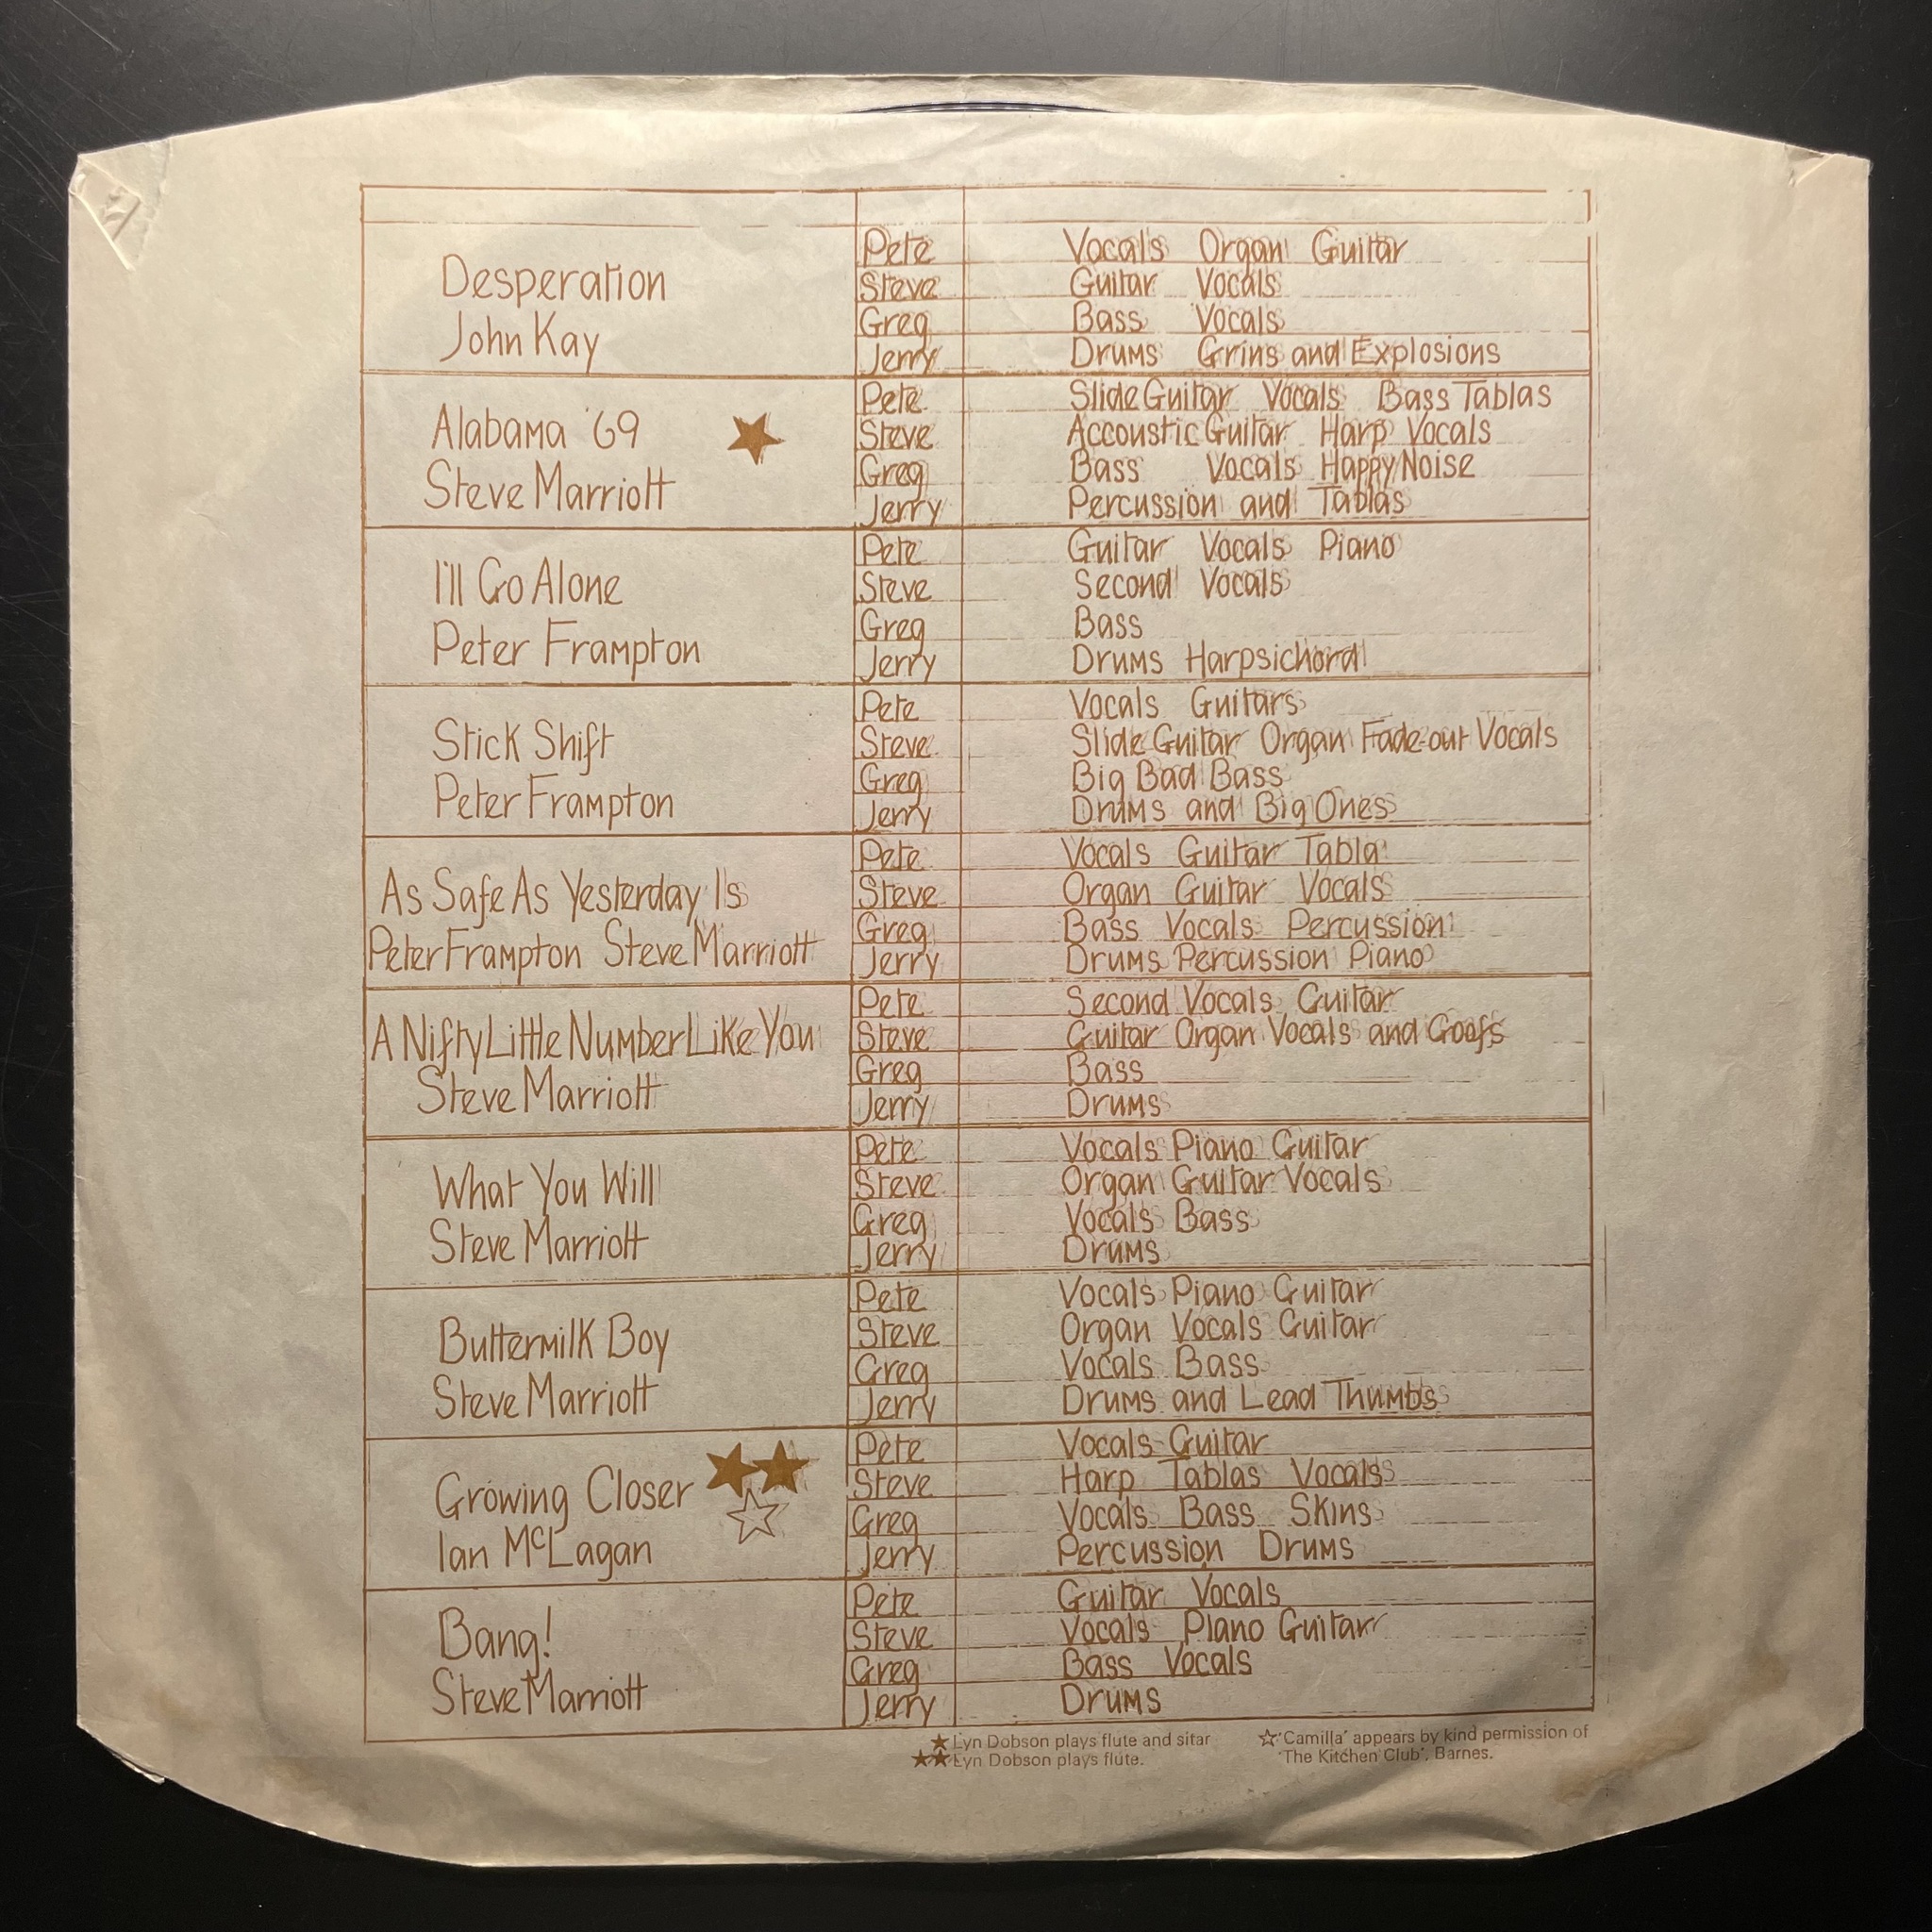 Desperation
John Kay
Pete Vocals Organ Guitar
Steve Guitar Vocals
Greg Bass Vocals
Jerry Drums Grins and Explosions
Alabama '69 ★
Steve Marriott
Pete Slide Guitar Vocals Bass Tablas
Steve Accoustic Guitar Harp Vocals
Greg Bass Vocals Happy Noise
Jerry Percussion and Tablas
I'll Go Alone
Peter Frampton
Pete Guitar Vocals Piano
Steve Second Vocals
Greg Bass
Jerry Drums Harpsichord
Stick Shift
Peter Frampton
Pete Vocals Guitars
Steve Slide Guitar Organ Fade-out Vocals
Greg Big Bad Bass
Jerry Drums and Big Ones
As Safe As Yesterday Is
Peter Frampton Steve Marriott
Pete Vocals Guitar Tabla
Steve Organ Guitar Vocals
Greg Bass Vocals Percussion
Jerry Drums Percussion Piano
A Nifty Little Number Like You
Steve Marriott
Pete Second Vocals Guitar
Steve Guitar Organ Vocals and Goofs
Greg Bass
Jerry Drums
What You Will
Steve Marriott
Pete Vocals Piano Guitar
Steve Organ Guitar Vocals
Greg Vocals Bass
Jerry Drums
Buttermilk Boy
Steve Marriott
Pete Vocals Piano Guitar
Steve Organ Vocals Guitar
Greg Vocals Bass
Jerry Drums and Lead Thumbs
Growing Closer ★★☆
Ian McLagan
Pete Vocals Guitar
Steve Harp Tablas Vocals
Greg Vocals Bass Skins
Jerry Percussion Drums
Bang!
Steve Marriott
Pete Guitar Vocals
Steve Vocals Piano Guitar
Greg Bass Vocals
Jerry Drums
★ Lyn Dobson plays flute and sitar
★★ Lyn Dobson plays flute.
☆ 'Camilla' appears by kind permission of
'The Kitchen Club', Barnes.